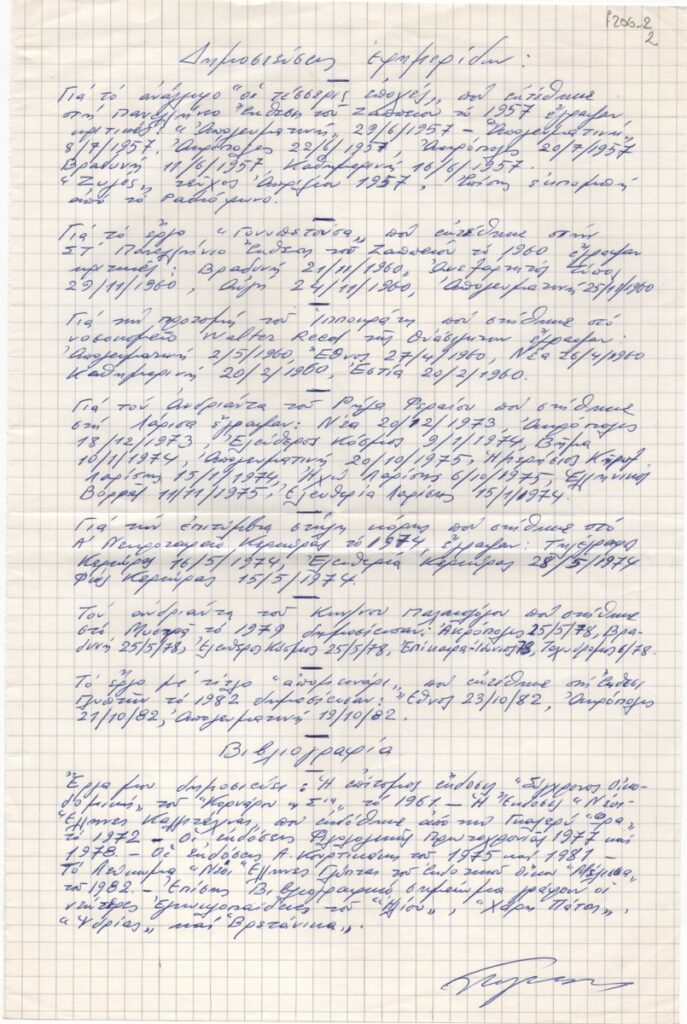 Γ206-2
2
Δημοσιεύσεις ἐφημερίδων:
Γιά τό ἀνάγλυφο "οἱ τέσσερις ἐποχές„ πού ἐκτέθηκε
στή Πανελλήνιο Ἔκθεση τοῦ Ζαππείου τό 1957 ἔγραψαν
κριτικές: "Ἀπογευματινή„ 29/6/1957 – Ἀπογευματινή
8/7/1957. Ἀκρόπολις 22/6/1957, Ἀκρόπολις 20/7/1957
Βραδυνή 11/6/1957 Καθημερινή 16/6/1957.
"Ζυγός„ τεῦχος Ἀπριλίου 1957, Ἐπίσης ἐκπομπή
ἀπό τό Ραδιόφωνο.
Γιά τό ἔργο "Γονυπετοῦσα„ πού ἐκτέθηκε στήν
ΣΤ' Πανελλήνιο Ἔκθεση τοῦ Ζαππείου τό 1960 ἔγραψαν
κριτικές: Βραδυνή 21/11/1960, Ἀνεξάρτητος Τύπος
29/11/1960, Αὐγή 24/11/1960, Ἀπογευματινή 25/11/1960
Γιά τήν προτομή τοῦ Ἱπποκράτη πού στήθηκε στό
νοσοκομεῖο Walter Reed τῆς Οὐάσιγκτων ἔγραψαν:
Ἀπογευματινή 2/5/1960, Ἔθνος 27/4/1960, Νέα 26/4/1960
Καθημερινή 20/2/1960, Ἑστία 20/2/1960.
Γιά τόν Ἀνδριάντα τοῦ Ρήγα Φεραίου πού στήθηκε
στή Λάρισα ἔγραψαν: Νέα 20/12/1973, Ἀκρόπολις
18/12/1973, Ἐλεύθερος Κόσμος 9/1/1974, Βῆμα
10/1/1974, Ἀπογευματινή 20/10/1975, Ἡμερήσιος Κῆρυξ
Λαρίσης 15/1/1974, Ἠχώ Λαρίσης 6/10/1975, Ἑλληνικός
Βορρᾶς 11/11/1975, Ἐλευθερία Λαρίσης 15/1/1974.
Γιά τήν ἐπιτύμβια στήλη κόρης πού στήθηκε στό
Α' Νεκροταφεῖο Κερκύρας τό 1974, ἔγραψαν: Τηλέγραφος
Κερκύρας 16/5/1974, Ἐλευθερία Κερκύρας 28/5/1974
Φῶς Κερκύρας 15/5/1974.
Τόν ἀνδριάντα τοῦ Κων/νου Παλαιολόγου πού στήθηκε
στό Μυστρᾶ τό 1979 δημοσίευσαν: Ἀκρόπολις 25/5/78, Βρα-
δυνή 25/5/78, Ἐλεύθερος Κόσμος 25/5/78, Ἐπίκαιρα 78, Ταχυδρόμος 6/78.
Τό ἔργο μέ τίτλο "ἀπομεινάρι„ πού ἐκτέθηκε στή Ἔκθεση
τήν τό 1982 δημοσίευσαν: Ἔθνος 23/10/82, Ἀκρόπολις
21/10/82, Ἀπογευματινή 19/10/82.
Βιβλιογραφία
Ἔργα μου δημοσιεύει: Ἡ ἐπίτομος ἔκδοση "Σύγχρονος Οἰκο-
δομική„ τοῦ "Κορνάρου & Σια„ τό 1961.– Ἡ Ἔκδοσις "Νέοι
Ἕλληνες Καλλιτέχναι πού ἐκδόθηκε ἀπό τήν
τό 1972 – Οἱ ἐκδόσεις Φιλολογικῆς Πρωτοχρονιᾶς 1977 καί
1978.– Οἱ ἐκδόσεις Α. τοῦ 1975 καί 1981 –
Τό Λεύκωμα "Νέοι Ἕλληνες Γλύπται τοῦ ἐκδοτικοῦ οἴκου "Μέλισσα„
τοῦ 1982.– Ἐπίσης Βιβλιογραφικό σημείωμα γράφουν οἱ
νεώτερες Ἐγκυκλοπαίδειες τοῦ "Ἡλίου„, "Χάρη Πάτση„,
"Ὑδρίας„ καί "Βρετάνικα„.